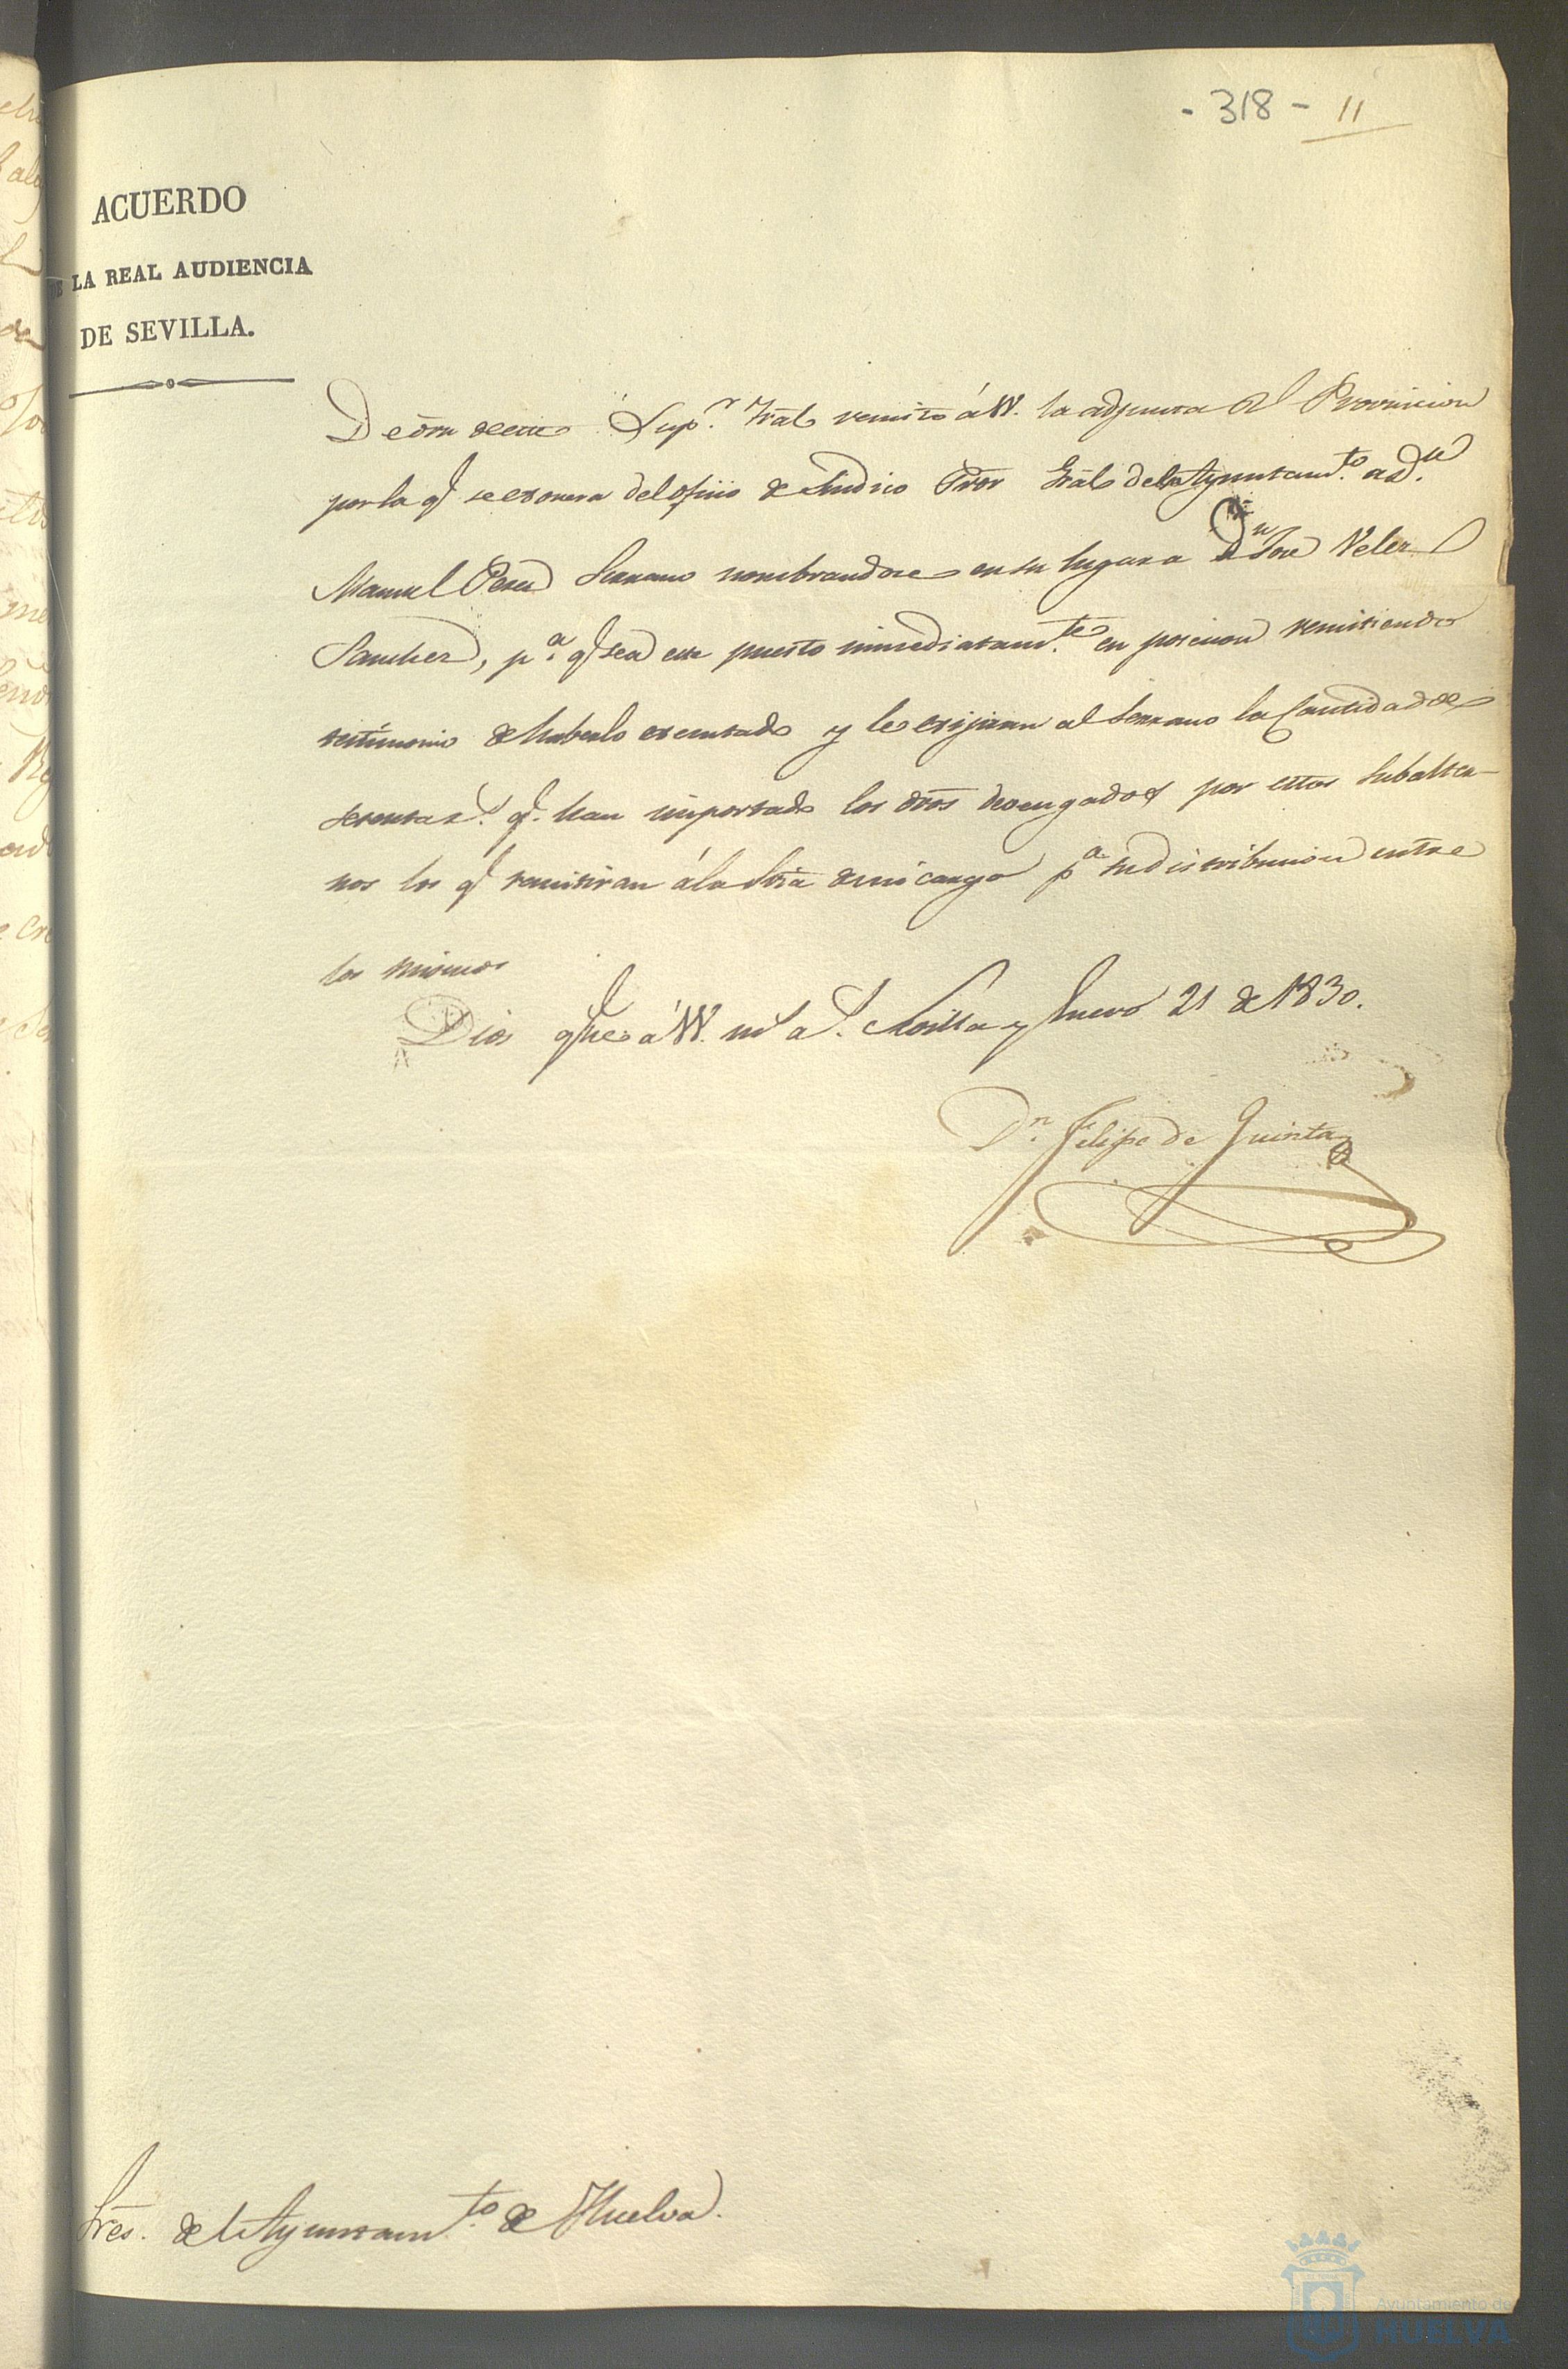 - 318 - 11
ACUERDO
DE LA REAL AUDIENCIA
DE SEVILLA.
De orn de este Sup.r Tral remito á VV. la adjunta Rl Provicion
por la q.e se exonera del oficio de Sindico Pror Gral del Ayuntam.to a d.n
Manuel Perez Serrano nombrandose en su lugar a D.n Jose Velez
Sanchez, p.a q.e sea este puesto inmediatam.te en posecion remitiendo
testimonio de haberlo executado y le exijiran al Serrano la Cantidad de
r.s q.e han importado los dros devengados por estos Subalter-
nos los q.e remitiran á la Sria de mi cargo p.a su distribucion entre
los mismos
Dios gue á VV. m.s a.s Sevilla y Enero 21 de 1830.
D.n Felipe de Quinta
Sres. del Ayuntam.to de Huelva.
Ayuntamiento de
HUELVA